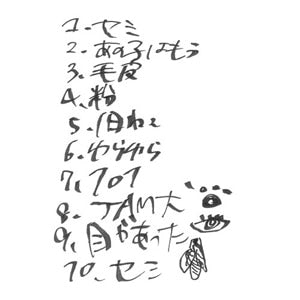 1. セミ
2. あの子はもう
3. 毛皮
4. 粉
5.
6.
7.
8. JAM大
9. 目があった
10. セミ